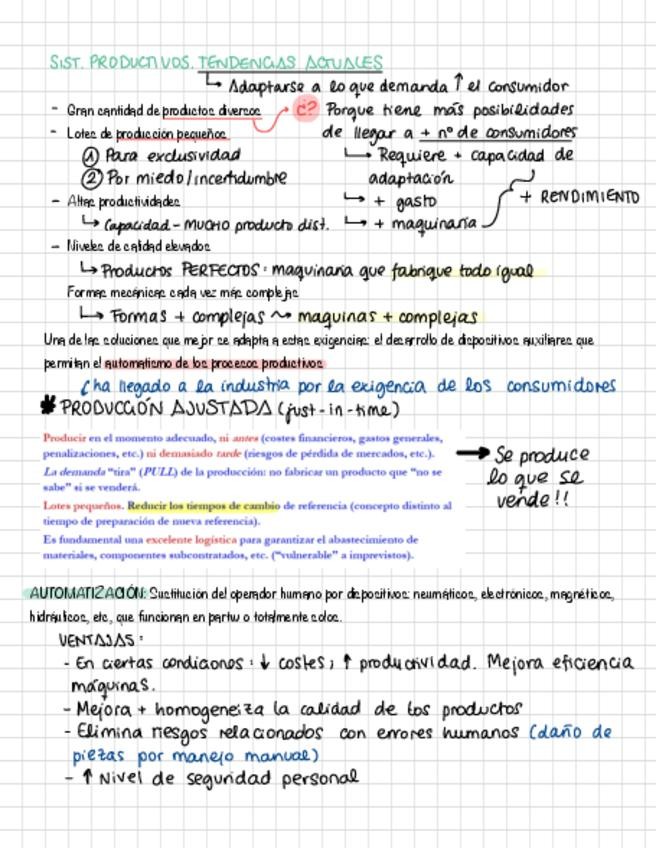 SIST. PRODUCTIVOS. TENDENCIAS ACTUALES
↳ Adaptarse a lo que demanda ↑ el consumidor
- Gran cantidad de productos diversos
¿? Porque tiene más posibilidades
- Lotes de producción pequeños
de llegar a + nº de consumidores
① Para exclusividad
↳ Requiere + capacidad de
② Por miedo/incertidumbre
adaptación
- Altas productividades
↳ + gasto
+ RENDIMIENTO
↳ Capacidad - MUCHO producto dist.
↳ + maquinaria
- Niveles de calidad elevados
↳ Productos PERFECTOS: maquinaria que fabrique todo igual
Formas mecánicas cada vez más complejas
↳ Formas + complejas ⤳ maquinas + complejas
Una de las soluciones que mejor se adapta a estas exigencias: el desarrollo de dispositivos auxiliares que
permitan el automatismo de los procesos productivos
(ha llegado a la industria por la exigencia de los consumidores
✱ PRODUCCIÓN AJUSTADA (just-in-time)
Producir en el momento adecuado, ni antes (costes financieros, gastos generales,
penalizaciones, etc.) ni demasiado tarde (riesgos de pérdida de mercados, etc.).
La demanda "tira" (PULL) de la producción: no fabricar un producto que "no se
sabe" si se venderá.
Lotes pequeños. Reducir los tiempos de cambio de referencia (concepto distinto al
tiempo de preparación de nueva referencia).
Es fundamental una excelente logística para garantizar el abastecimiento de
materiales, componentes subcontratados, etc. ("vulnerable" a imprevistos).
→ Se produce
lo que se
vende!!
AUTOMATIZACIÓN: Sustitución del operador humano por dispositivos: neumáticos, electrónicos, magnéticos,
hidráulicos, etc, que funcionan en partw o totalmente solos.
VENTAJAS:
- En ciertas condiciones: ↓ costes; ↑ productividad. Mejora eficiencia
máquinas.
- Mejora + homogeneiza la calidad de los productos
- Elimina riesgos relacionados con errores humanos (daño de
piezas por manejo manual)
- ↑ Nivel de seguridad personal